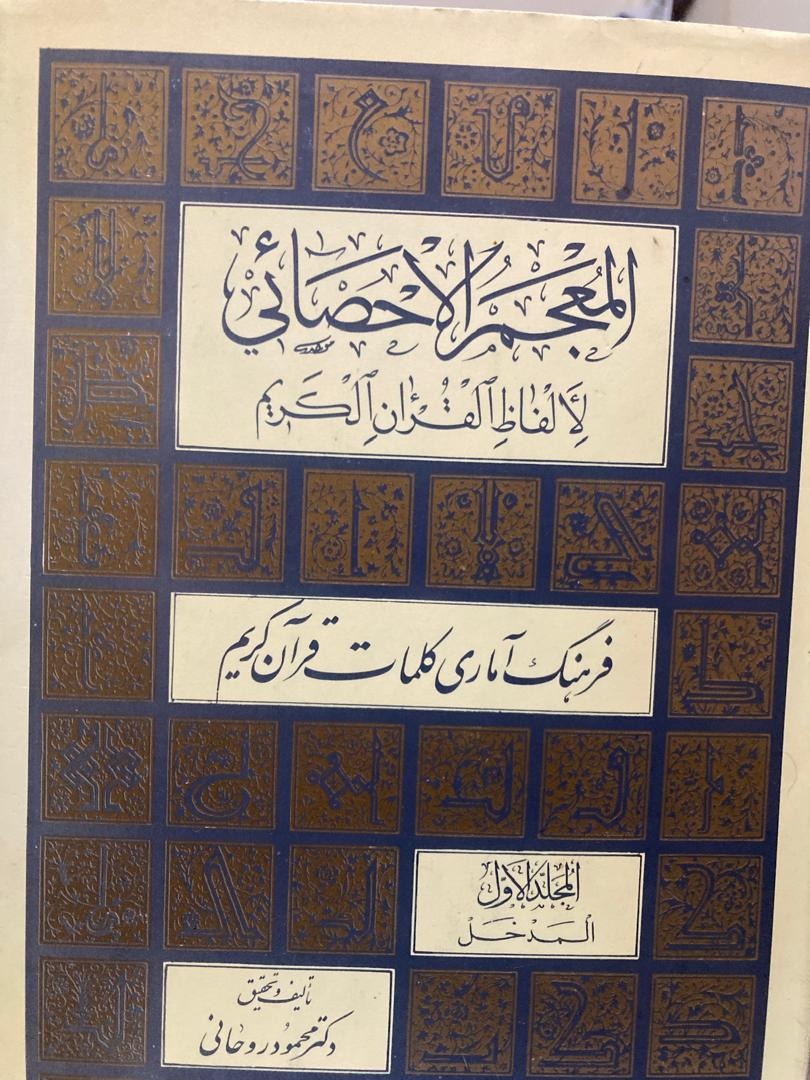 المُعْجَمُ الْإحْصَائي
لِأَلْفَاظِ الْقُرْآنِ الْكَرِيمِ
فرهنگ آماری کلمات قرآن کریم
المُجَلَّدُ الْأَوَّل
الْمَدْخَل
تألیف و تحقیق
دکتر محمود روحانی